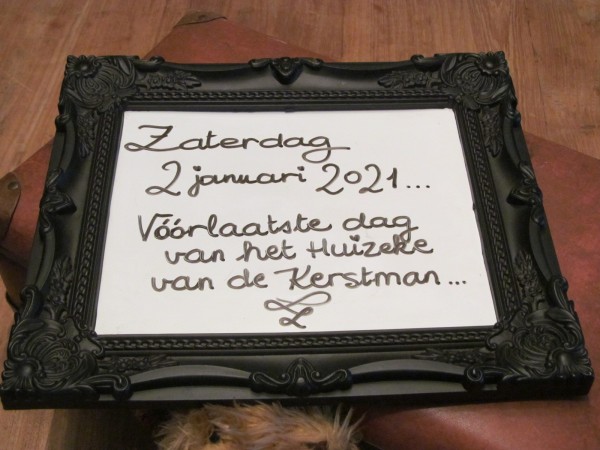 Zaterdag
2 januari 2021...
Vóórlaatste dag
van het Huizeke
van de Kerstman...